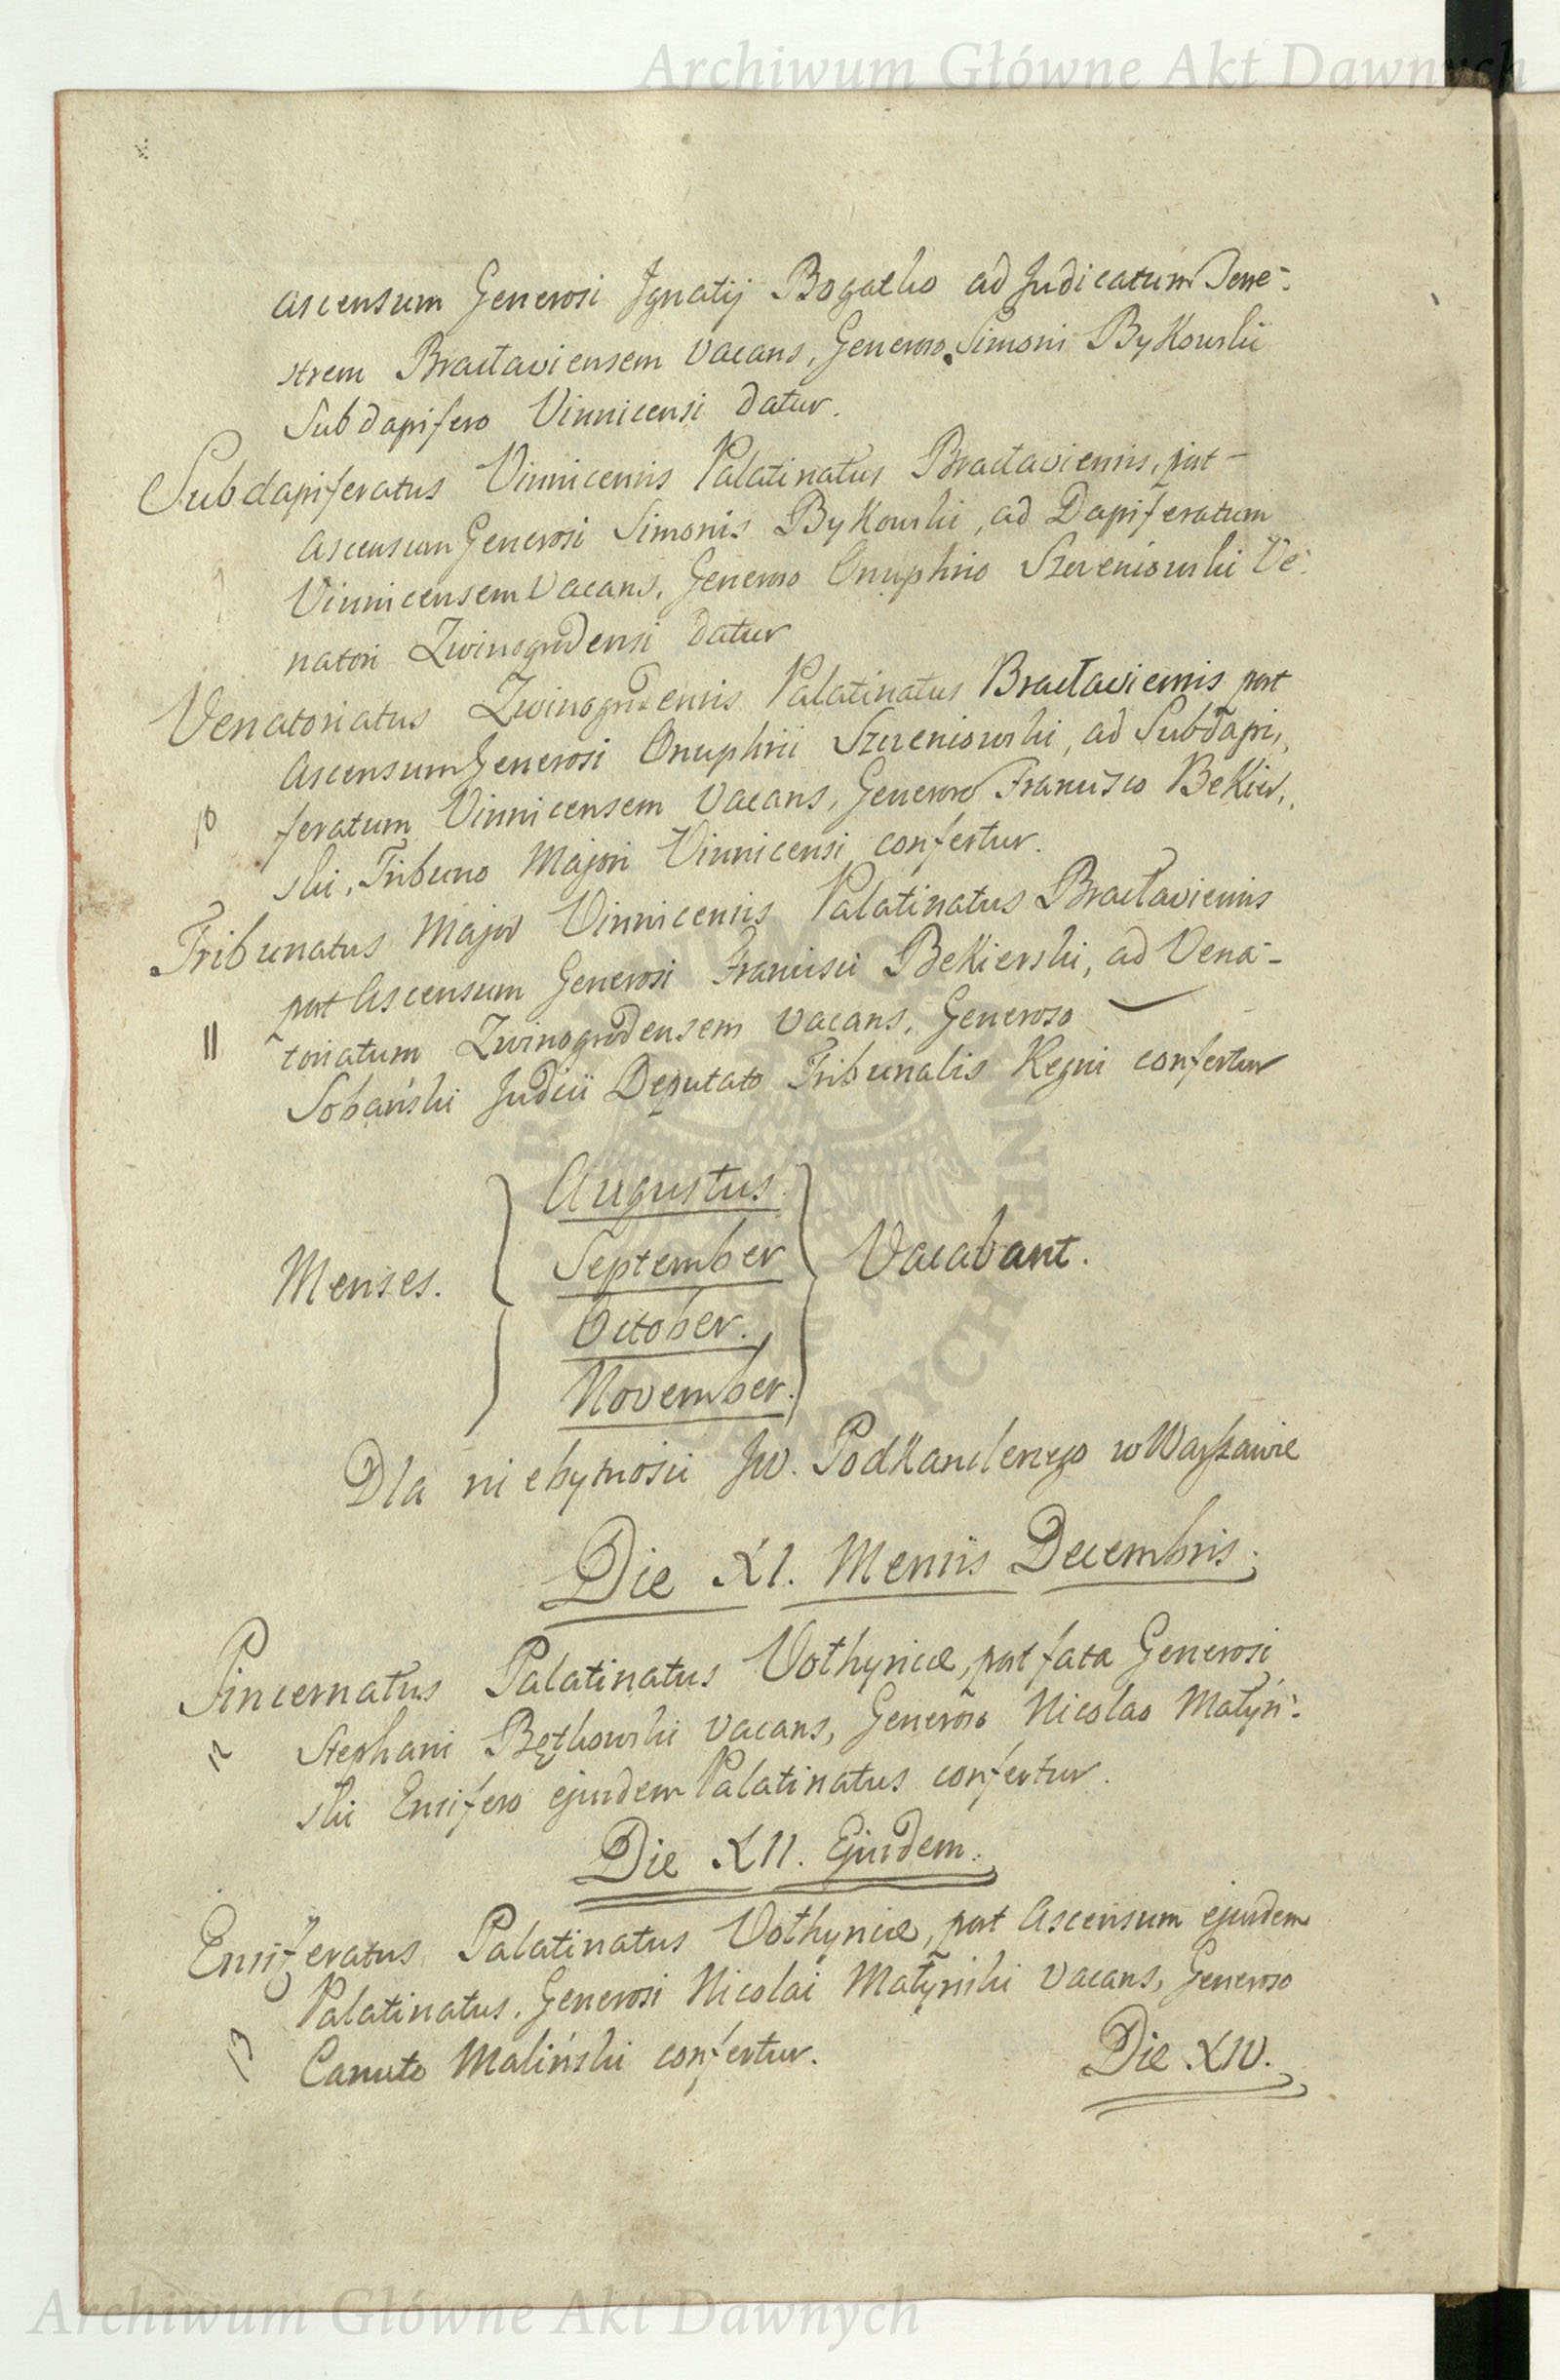 Archiwum Główne Akt Dawnych
ascensum Generosi Ignatij Bogatko ad Judicatum Terre-
strem Bracłaviensem vacans, Generoso Simoni Bykowskii
Subdapifero Vinnicensi datur.
Subdapiferatus Vinnicensis Palatinatus Bracłaviensis, post
ascensum Generosi Simonis Bykowski, ad Dapiferatum
9
Vinnicensem vacans, Generoso Onuphrio Szereniowski Ve-
natori Zwinogrodensi datur
Venatoriatus Zwinogrodensis Palatinatus Bracłaviensis post
Ascensum Generosi Onuphrii Szereniowski, ad Subdapi,,
10 feratum Vinnicensem vacans, Generoso Francisco Bekier,,
ski, Tribuno Majori Vinnicensi confertur.
Tribunatus Major Vinnicensis Palatinatus Bracłaviensis
post Ascensum Generosi Francisci Bekierski, ad Vena-
11 toriatum Zwinogrodensem vacans, Generoso —
Sobański Judicii Deputato Tribunalis Regni confertur
Augustus
September
Menses. Vacabant.
October.
November.
Dla niebytności Jw. Podkanclerzego w Warszawie
Die XI. Mensis Decembris.
Pincernatus Palatinatus Vołhyniæ, post fata Generosi
12 Stephani Bętkowski vacans, Generoso Nicolao Małyń-
ski Ensifero ejusdem Palatinatus confertur.
Die XII. Ejusdem.
Ensiferatus Palatinatus Vołhyniæ, post Ascensum ejusdem
Palatinatus. Generosi Nicolai Małyński vacans, Generoso
13 Canuto Maliński confertur. Die XIV.
Archiwum Główne Akt Dawnych